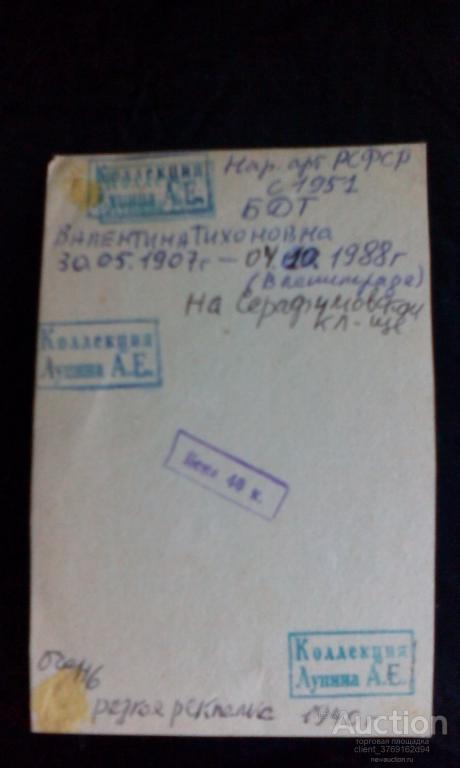 Коллекция
Лупина А.Е.
Нар. арт РСФСР
с 1951
БДТ
Валентина Тихоновна
30.05.1907г – 04.10.1988г
(в Ленинграде)
на Серафимовском
кл-ще
Коллекция
Лупина А.Е.
Цена 40 к.
Коллекция
Лупина А.Е.
очень
редкая
Auction
торговая площадка
client_3769162d94
newauction.ru